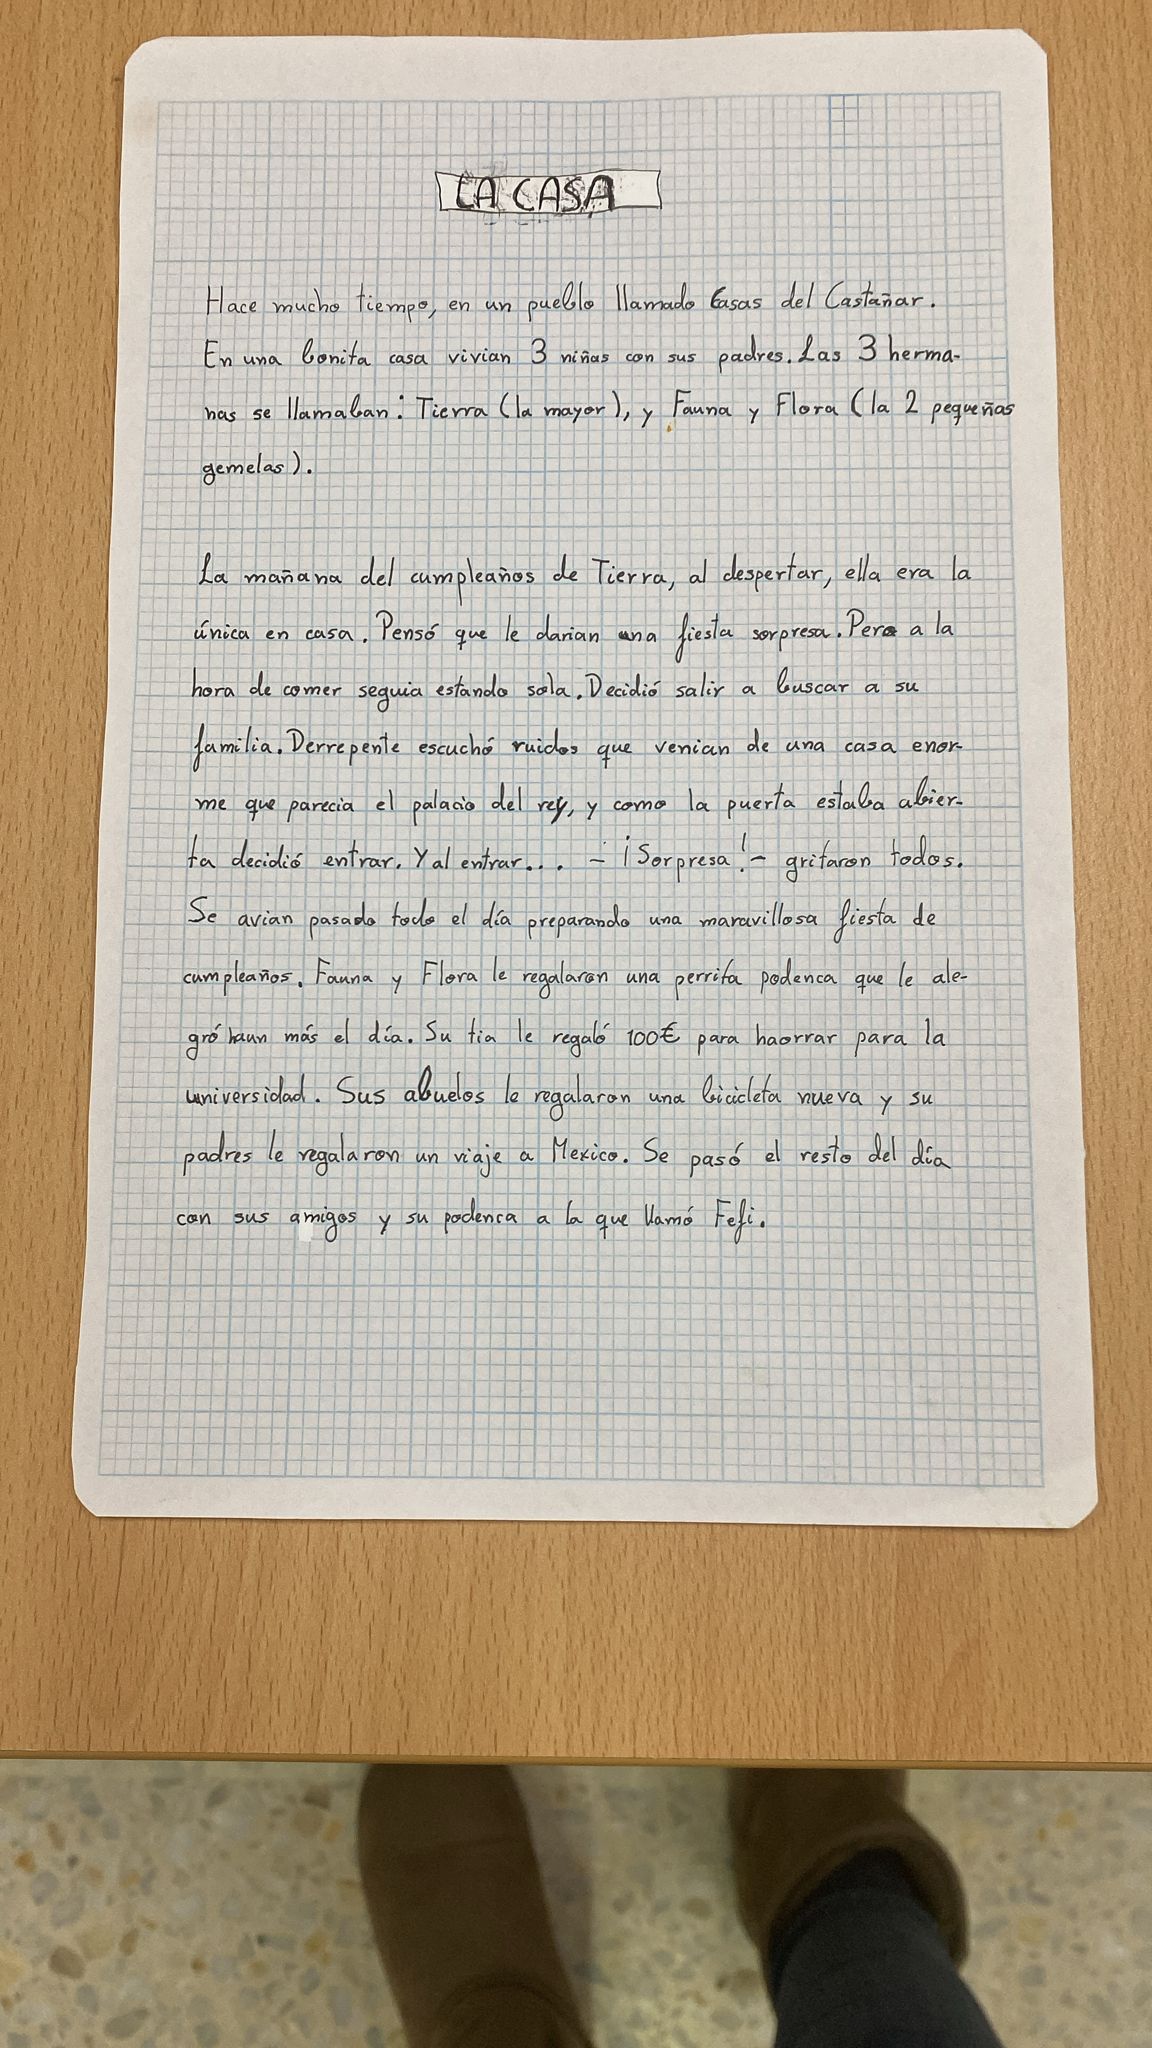 LA CASA
Hace mucho tiempo, en un pueblo llamado Casas del Castañar.
En una bonita casa vivian 3 niñas con sus padres. Las 3 herma-
nas se llamaban: Tierra (la mayor), y Fauna y Flora (la 2 pequeñas
gemelas).
La mañana del cumpleaños de Tierra, al despertar, ella era la
única en casa. Pensó que le darian una fiesta sorpresa. Pero a la
hora de comer seguia estando sola. Decidió salir a buscar a su
familia. Derrepente escuchó ruidos que venian de una casa enor-
me que parecia el palacio del rey, y como la puerta estaba abier-
ta decidió entrar. Y al entrar... - ¡Sorpresa! - gritaron todos.
Se avian pasado todo el día preparando una maravillosa fiesta de
cumpleaños. Fauna y Flora le regalaron una perrita podenca que le ale-
gró haun más el día. Su tia le regaló 100€ para haorrar para la
universidad. Sus abuelos le regalaron una bicicleta nueva y su
padres le regalaron un viaje a Mexico. Se pasó el resto del día
con sus amigos y su podenca a la que llamó Fefi.